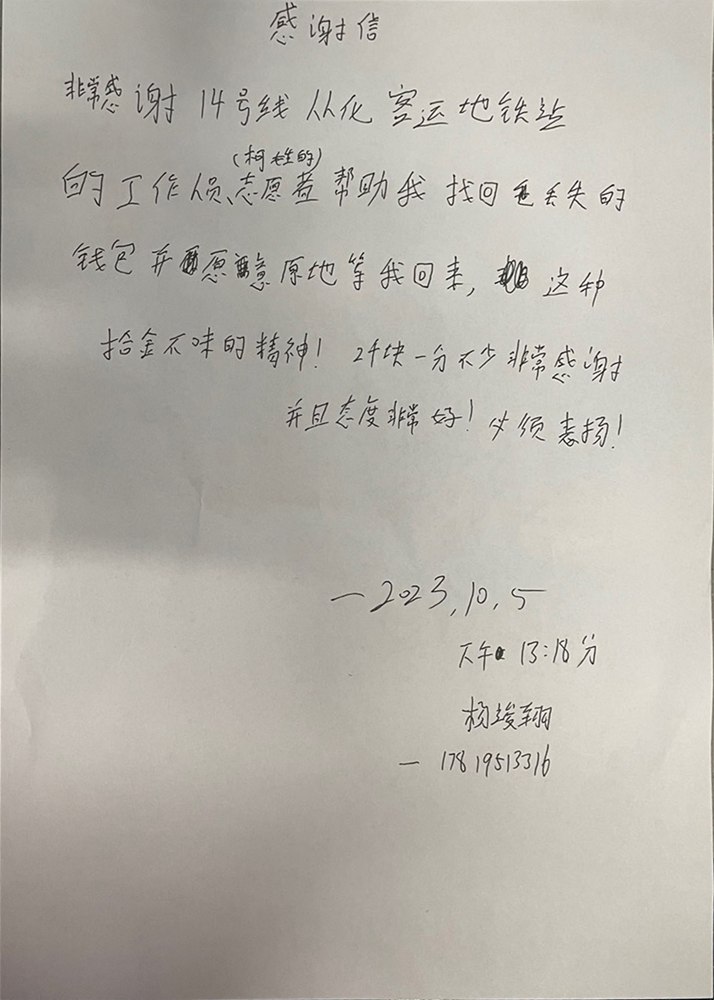 感谢信
非常感谢14号线从化客运地铁站
(柯姓的)
的工作员、志愿者帮助我找回丢失的
钱包并愿意原地等我回来,这种
拾金不昧的精神!2千块一分不少非常感谢
并且态度非常好!必须表扬!
—2023.10.5
下午13:18分
杨竣翔
—17819513316